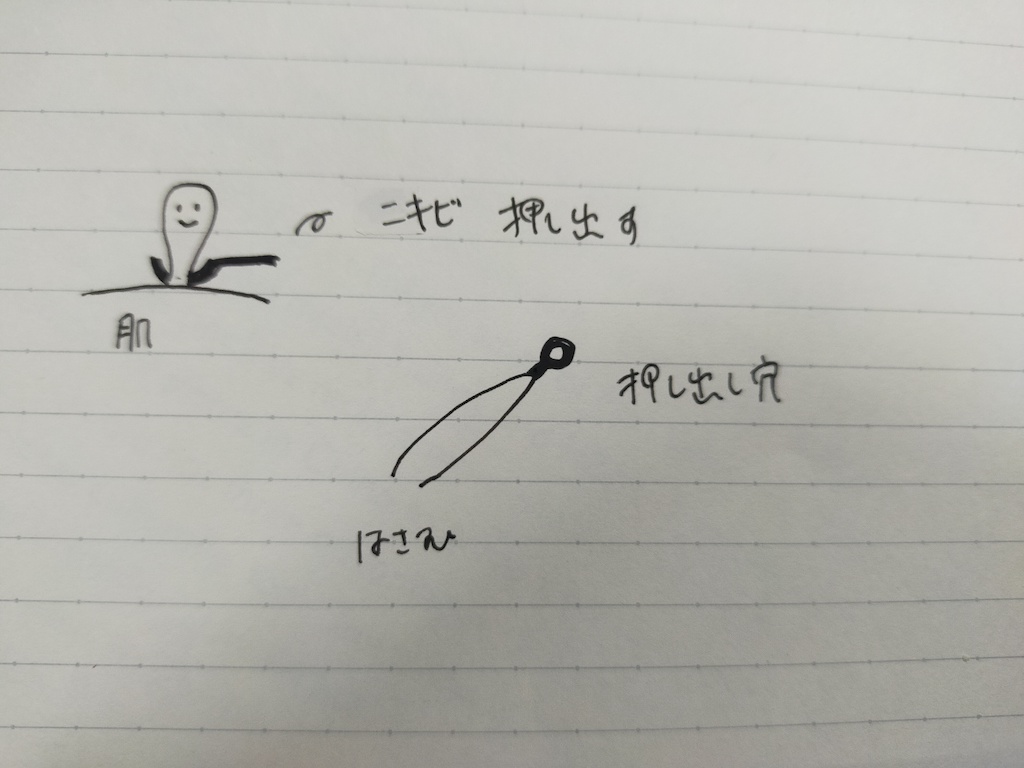 ニキビ 押し出す
肌
押し出し穴
はさむ